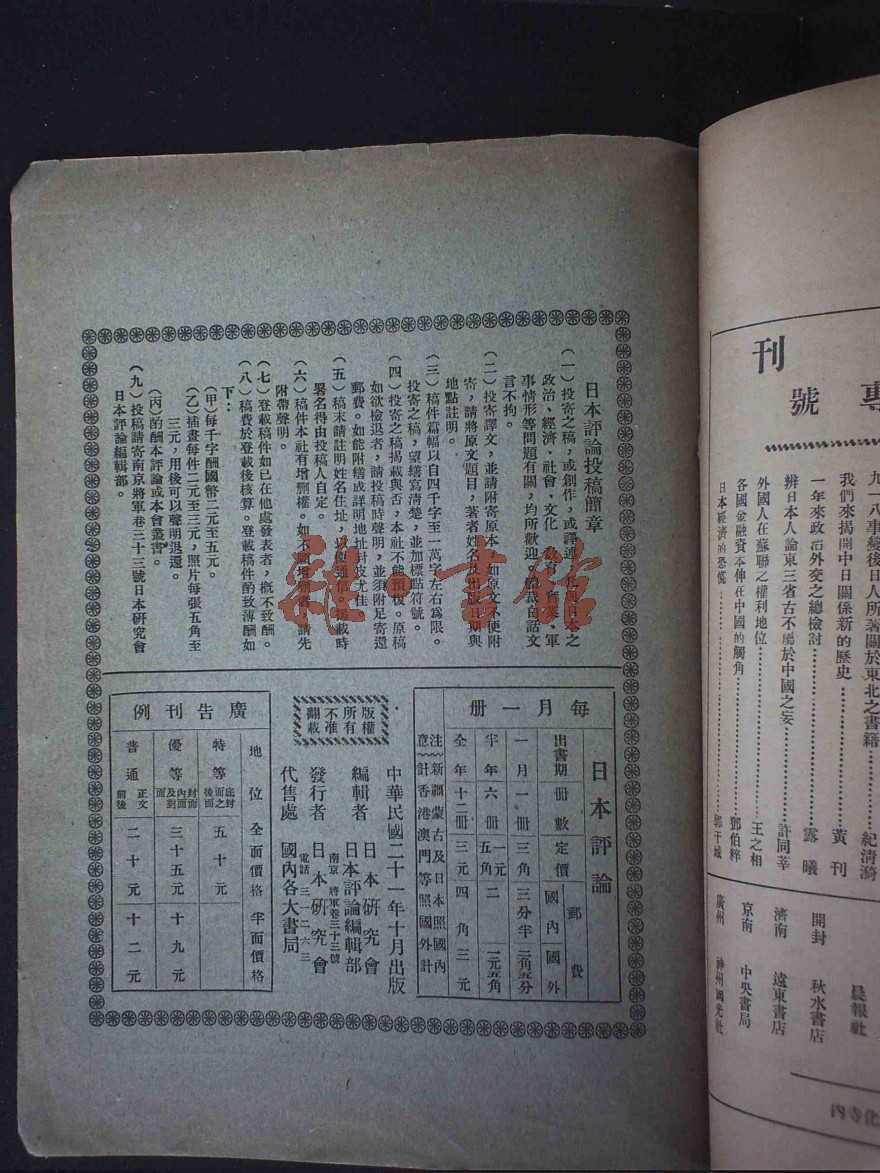 日本評論投稿簡章
(一)投寄之稿,或創作,或譯述,凡與日本之
政治、經濟、社會、文化、教育、實業、軍
事情形等問題有關,均所歡迎。體裁白話文
言不拘。
(二)投寄譯文,並請附寄原本。如原文不便附
寄,請將原文題目,著者姓名及出版日期與
地點註明。
(三)稿件篇幅以自四千字至一萬字左右為限。
投寄之稿,望繕寫清楚,並加標點符號。
(四)投寄之稿揭載與否,本社不能預復。原稿
如欲檢退者,請投稿時聲明,並須附足寄還
郵費。如能附繕或詳明地址封皮尤佳。
(五)稿末請註明姓名住址,以便通信。揭載時
署名得由投稿人自定。
(六)稿件本社有增刪權。如不願增刪者,請先
附帶聲明。
(七)登載稿件如已在他處發表者,概不致酬。
(八)稿費於登載後核算。登載稿件酌致薄酬如
下:
(甲)每千字酬國幣二元至五元。
(乙)插畫每件二元至三元,照片每張五角至
三元,用後可以聲明退還。
(丙)酌酬本評論或本會叢書。
(九)投稿請寄南京將軍巷三十三號日本研究會
日本評論編輯部。
日本評論
每月一册
出書期 册數 定價 郵費 國內 國外
一月 一册 三角 三分半 二角五分
半年 六册 一元五角 二 一元五角
全年 十二册 三元 四角 三元
注意 新疆蒙古及日本照國內計香港澳門等照國外計
中華民國二十一年十月出版
編輯者 日本研究會
日本評論編輯部
南京 將軍巷三十三號
發行者 日本研究會
電話 三一二六三
代售處 國內各大書局
版權所有
不准翻載
廣告刊例
地位 全面價格 半面價格
特等 底封面之後面 五十元
優等 封面內面及對面 三十五元 十九元
普通 正文前後 二十元 十二元
專
刊
號
九一八事變後日人所著關於東北之書籍 紀清漪
我們來揭開中日關係新的歷史 黃刊
一年來政治外交之總檢討 露曦
辨日本人論東三省古不屬於中國之妄 許同莘
外國人在蘇聯之權利地位 王之相
各國金融資本伸在中國的觸角 鄧伯粹
日本經濟的恐慌 郭千城
晨報社
開封 秋水書店
濟南 遠東書店
京南 中央書局
廣州 神州國光社
化寺內